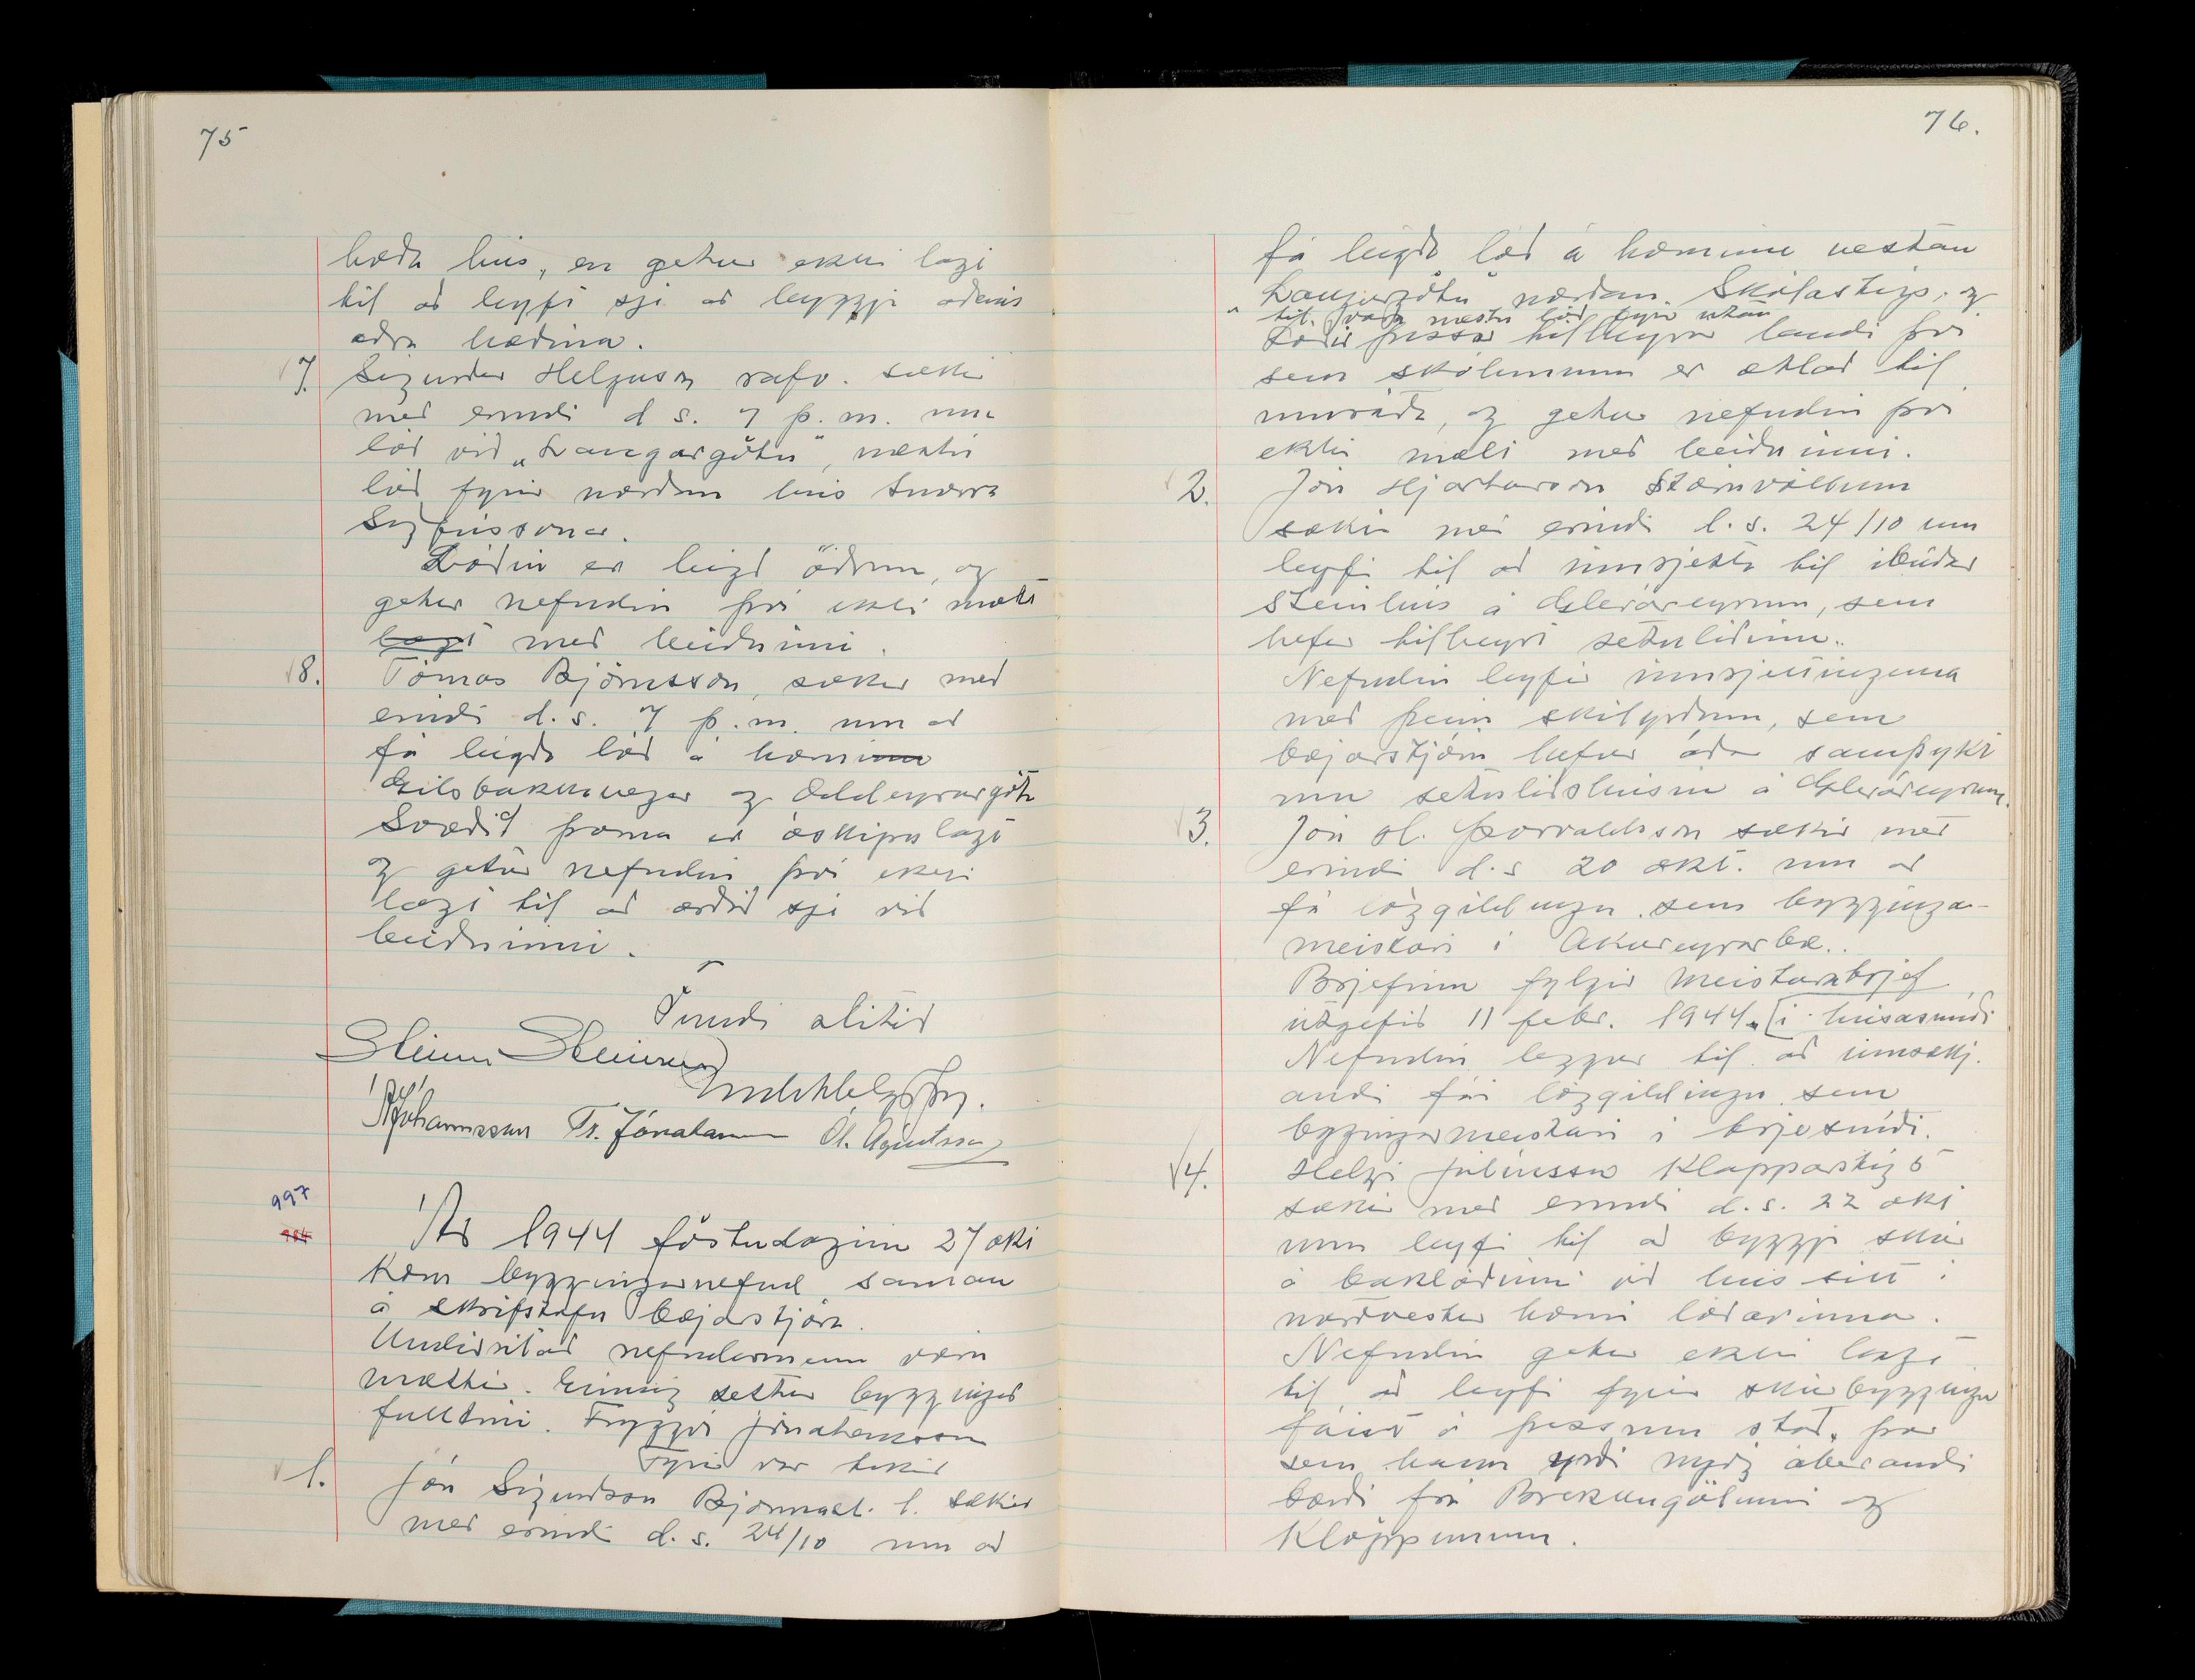 75
hæða hús, en getur ekki lagt
til að leyfi sje að byggja aðeins
aðra hæðina.
7. Sigurður Helgason rafv. sækir
með erindi d s. 7 þ.m. um
lóð við „Langargötu", næstu
lóð fyrir norðan hús Snorra
Sigfússonar.
Lóðin er leigð öðrum, og
getur nefndin því ekki mælt
lagt með beiðninni.
8. Tómas Björnsson, sækir með
erindi d.s. 7 þ.m. um að
fá leigða lóð á horninu
Gilsbakkavegar og Oddeyrargötu
Svæðið þarna er óskipulagt
og getur nefndin því ekki
lagt til að orðið sje við
beiðninni.
Fundi slitið
Steinn Steinsen
Johannsson Tr. Jónatansson Ól. Ágústsson
997
984
Ár 1944 föstudaginn 27 okt
kom byggingarnefnd saman
á skrifstofu bæjarstjóra.
Undirritaðir nefndarmenn voru
mættir. Einnig settur byggingar
fulltrúi. Tryggvi Jónatansson
Fyrir var tekið
1. Jón Sigurðsson Bjarmast. 1. sækir
með erindi d.s. 24/10 um að
76.
fá leigða lóð á horninu vestan
„Langargötu" norðan Skólastígs, og
til vara næstu lóð fyrir utan
Lóðir þessar tilheyra landi því
sem skólunum er ætlað til
umráða, og getur nefndin því
ekki mælt með beiðninni.
2. Jón Hjartarson Stórnvöllum
sækir með erindi d.s. 24/10 um
leyfi til að innrjetta til íbúðar
steinhús á Gleráreyrum, sem
hefur tilheyrt setuliðinu.
Nefndin leyfir innrjettinguna
með þeim skilyrðum, sem
bæjarstjórn hefur áður samþykt
um setuliðshúsin á Gleráreyrum.
3. Jón St. Þorvaldsson sækir með
erindi d.s 20 okt. um að
fá löggildingu sem bygginga-
meistari í Akureyrarbæ..
Brjefinu fylgir meistarabrjef
útgefið 11 febr. 1944. [í húsasmíði
Nefndin leggur til að umsækj.
andi fái löggildingu sem
byggingarmeistari í trjesmíði.
4. Helgi Júlíusson Klapparstíg 5
sækir með erindi d.s. 22 okt
um leyfi til að byggja skúr
á baklóðinni við hús sitt í
norðvestur horni lóðarinnar.
Nefndin getur ekki lagt
til að leyfi fyrir skúrbyggingu
fáist á þessum stað, þar
sem hann yrði mjög áberandi
bæði frá Brekkugötunni og
Klöppunum.